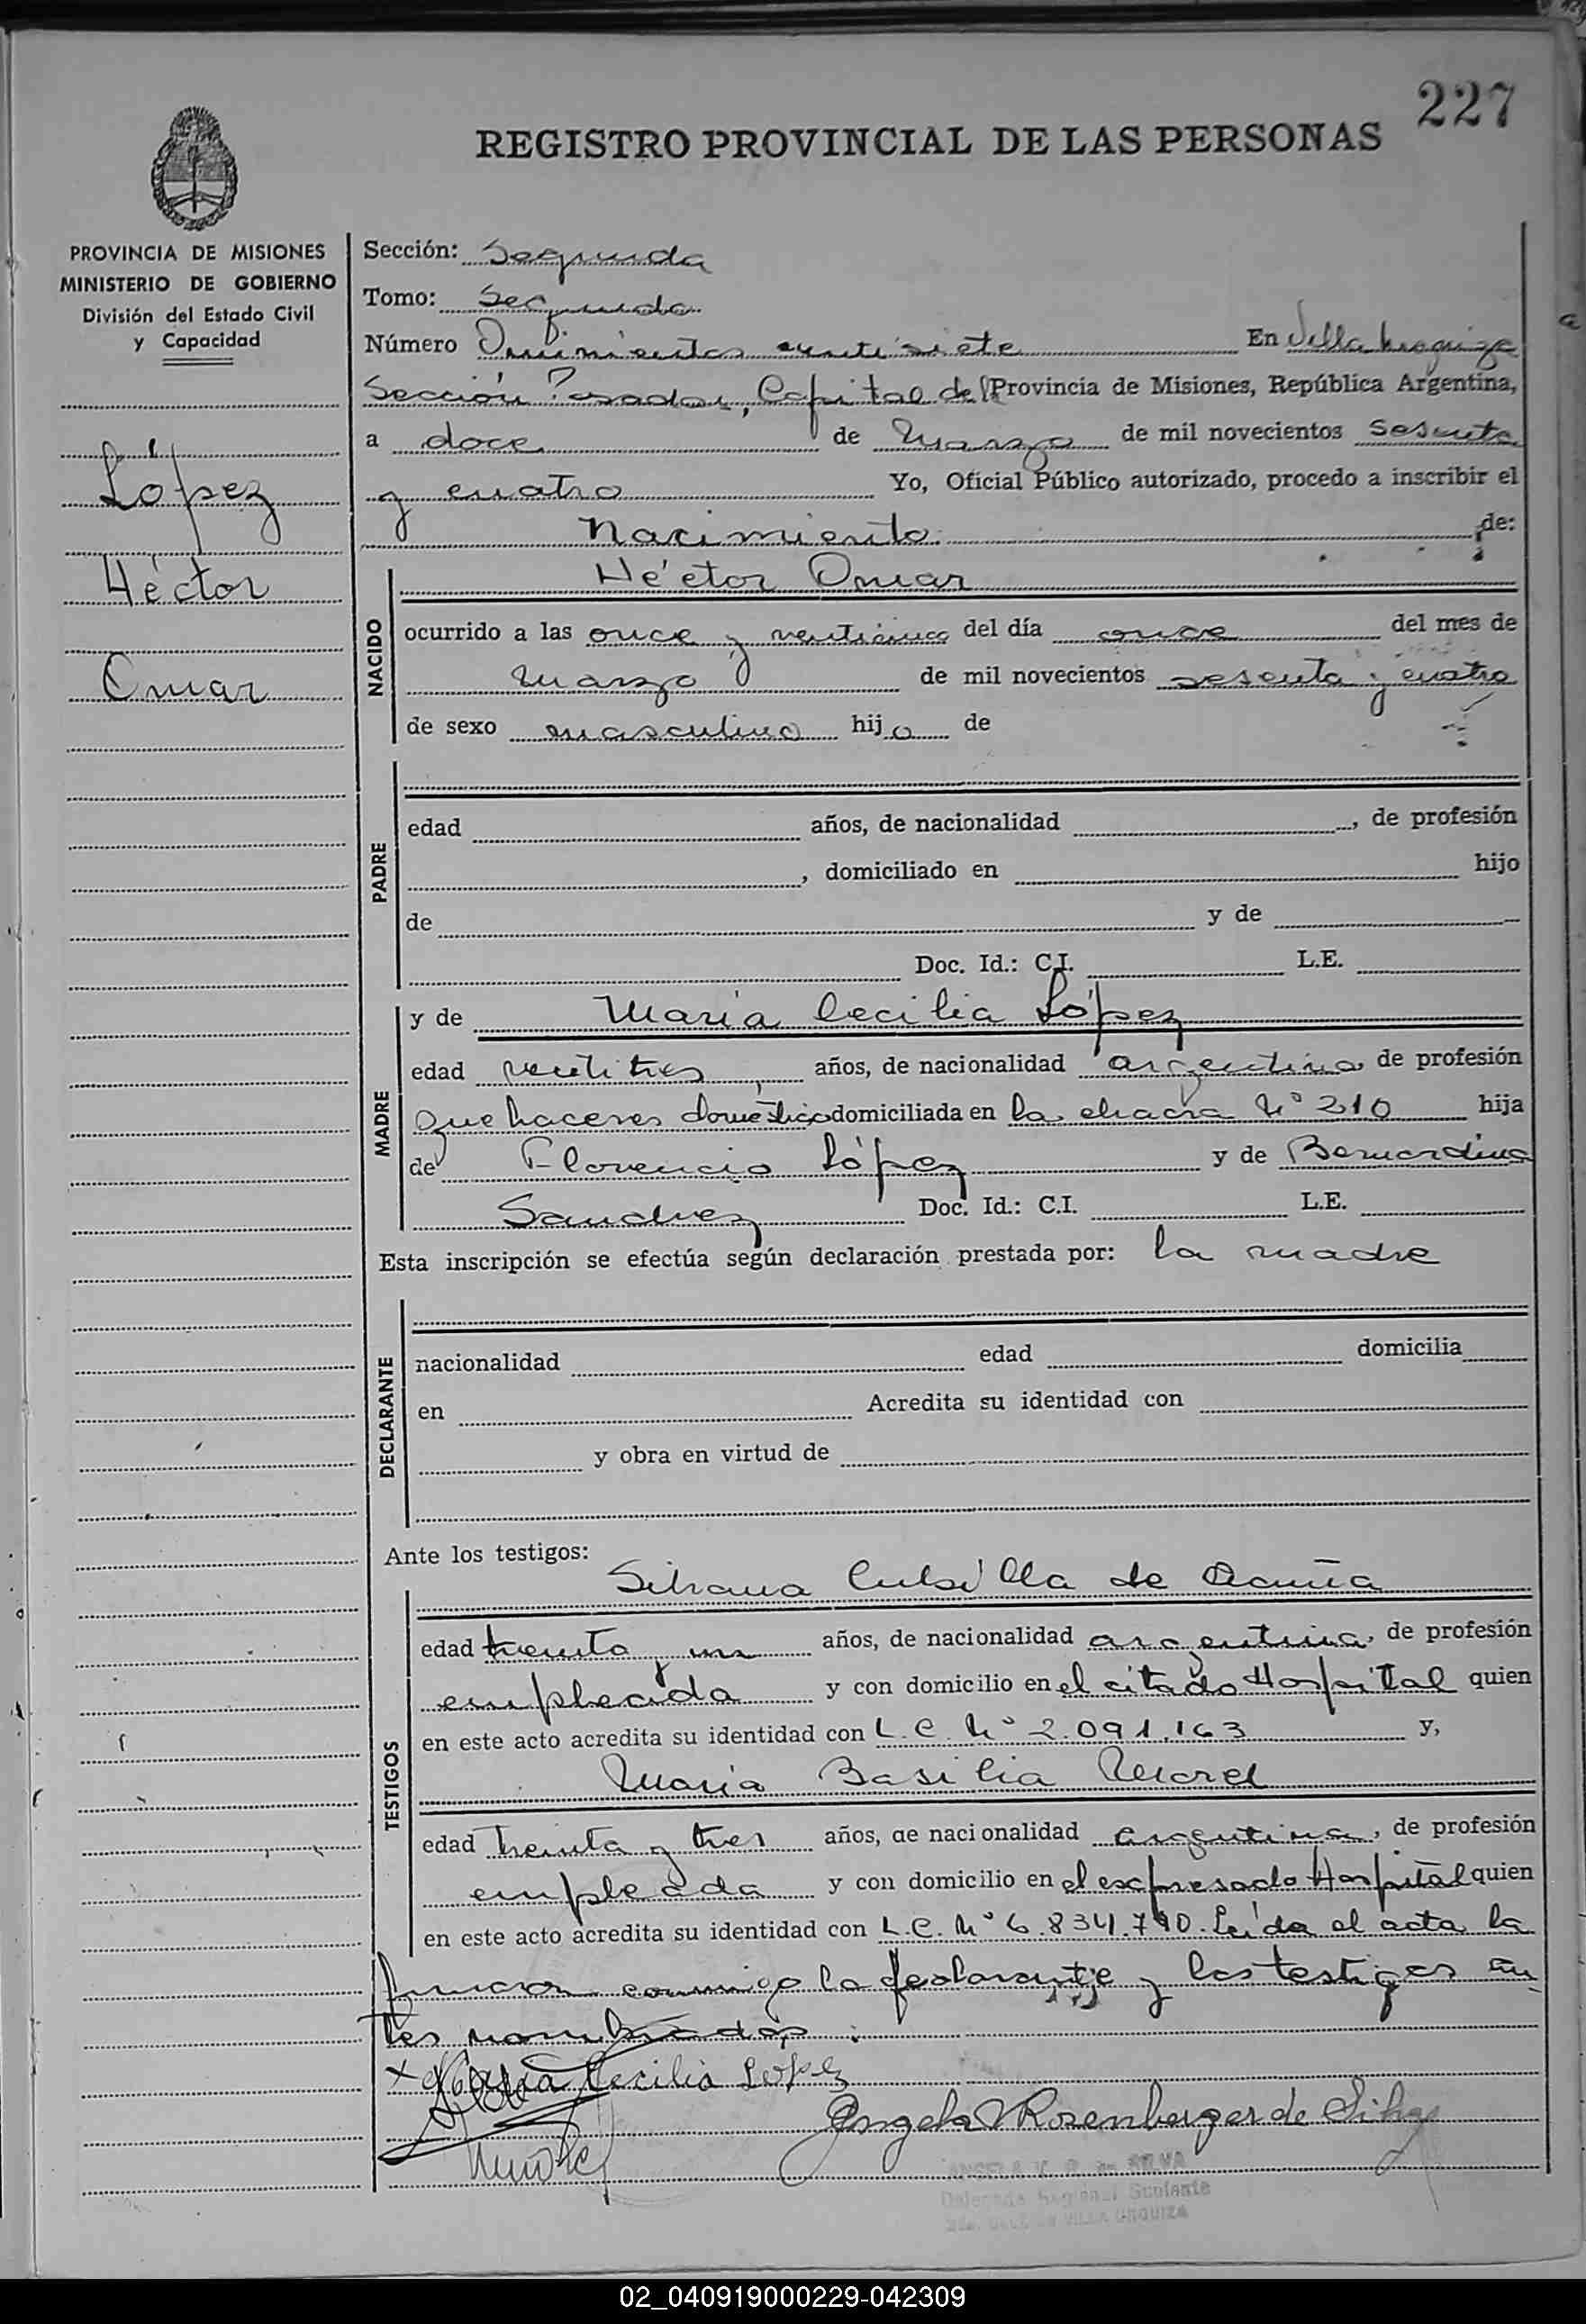 227
REGISTRO PROVINCIAL DE LAS PERSONAS
PROVINCIA DE MISIONES
MINISTERIO DE GOBIERNO
División del Estado Civil
y Capacidad
López
Héctor
Omar
Sección: Segunda
Tomo: Segundo
Número veintisiete En Villa Urquiza
Sección Posadas, Capital de la Provincia de Misiones, República Argentina,
a doce de Marzo de mil novecientos sesenta
y cuatro Yo, Oficial Público autorizado, procedo a inscribir el
Nacimiento de:
NACIDO
Héctor Omar
ocurrido a las once y veinticinco del día once del mes de
marzo de mil novecientos sesenta y cuatro
de sexo masculino hijo de
PADRE
edad años, de nacionalidad , de profesión
, domiciliado en hijo
de y de
Doc. Id.: C.I. L.E.
MADRE
y de María Cecilia López
edad veintitres años, de nacionalidad argentina, de profesión
que haceres domésticos domiciliada en la chacra Nº 210 hija
de Florencio López y de Bernardina
Sanchez Doc. Id.: C.I. L.E.
Esta inscripción se efectúa según declaración prestada por: la madre
DECLARANTE
nacionalidad edad domicilia
en Acredita su identidad con
y obra en virtud de
Ante los testigos:
TESTIGOS
de Acuña
edad treinta y un años, de nacionalidad argentina, de profesión
empleada y con domicilio en el citado Hospital quien
en este acto acredita su identidad con L.C. Nº 2.091.163 y,
María Basilia Morel
edad treinta y tres años, de nacionalidad argentina, de profesión
empleada y con domicilio en el expresado Hospital quien
en este acto acredita su identidad con L.C. Nº 6.834.790. Leída el acta la
firman conmigo la declarante y los testigos an
tes nombrados.
x María Cecilia Lopez
Angela V Rosenberger de Silva
ANGELA V. R. de SILVA
02_040919000229-042309